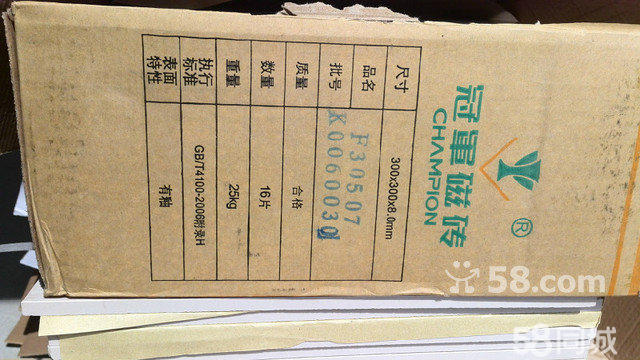 ®
冠軍磁砖
CHAMPION
尺寸 300x300x8.0mm
品名 F30507
批号
质量 合格
数量 16片
重量 25kg
执行标准 GB/T4100-2006附录H
表面特性 有釉
58.com
58同城